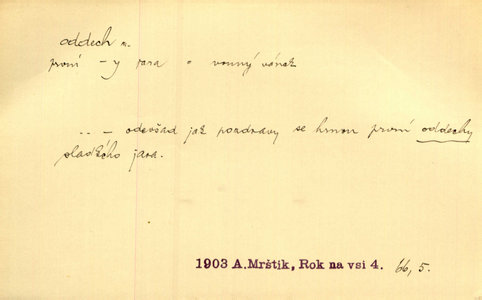 oddech m.
první -y jara = vonný vánek
.. - odevšad jak pozdravy se hrnou první oddechy
sladkého jara.
1903 A.Mrštík, Rok na vsi 4. 66, 5.